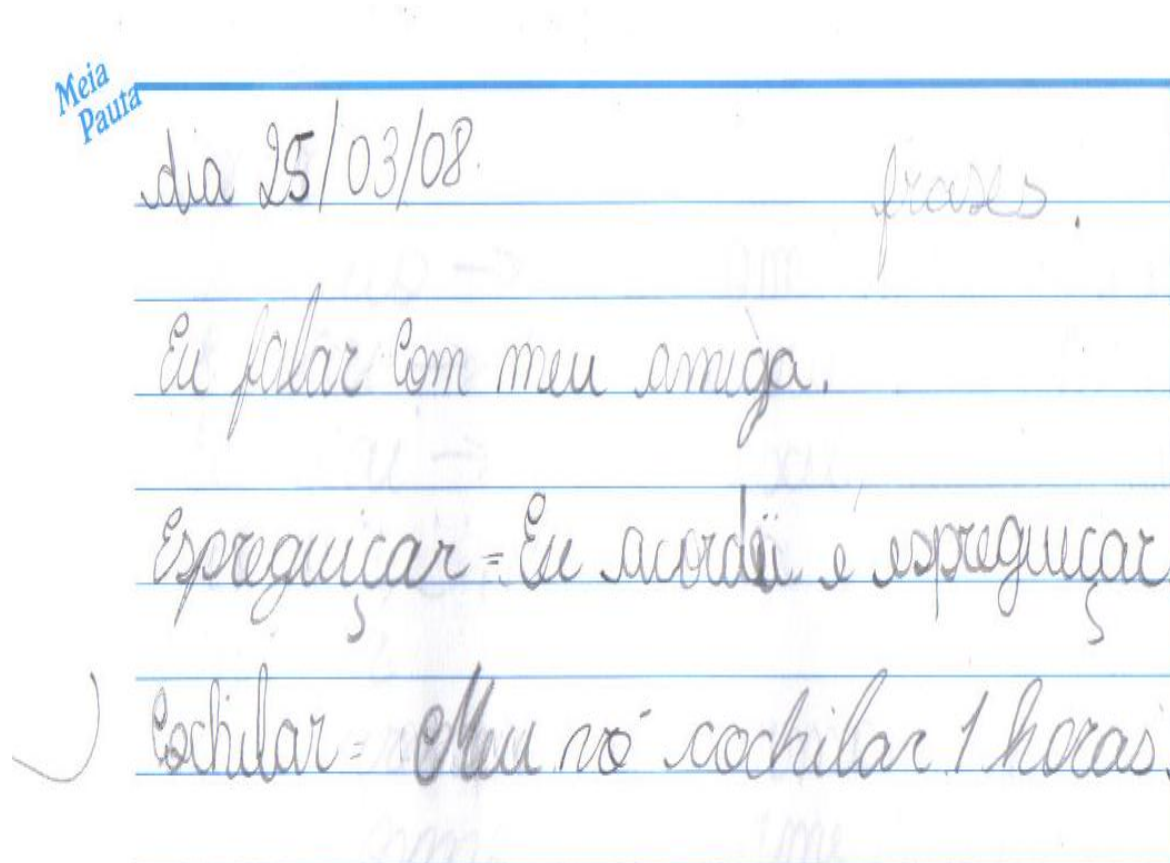 Meia
Pauta
dia 25/03/08. frases.
Eu falar com meu amiga.
Espreguiçar = Eu acordei é espreguiçar
Cochilar = Meu vó cochilar 1 horas.